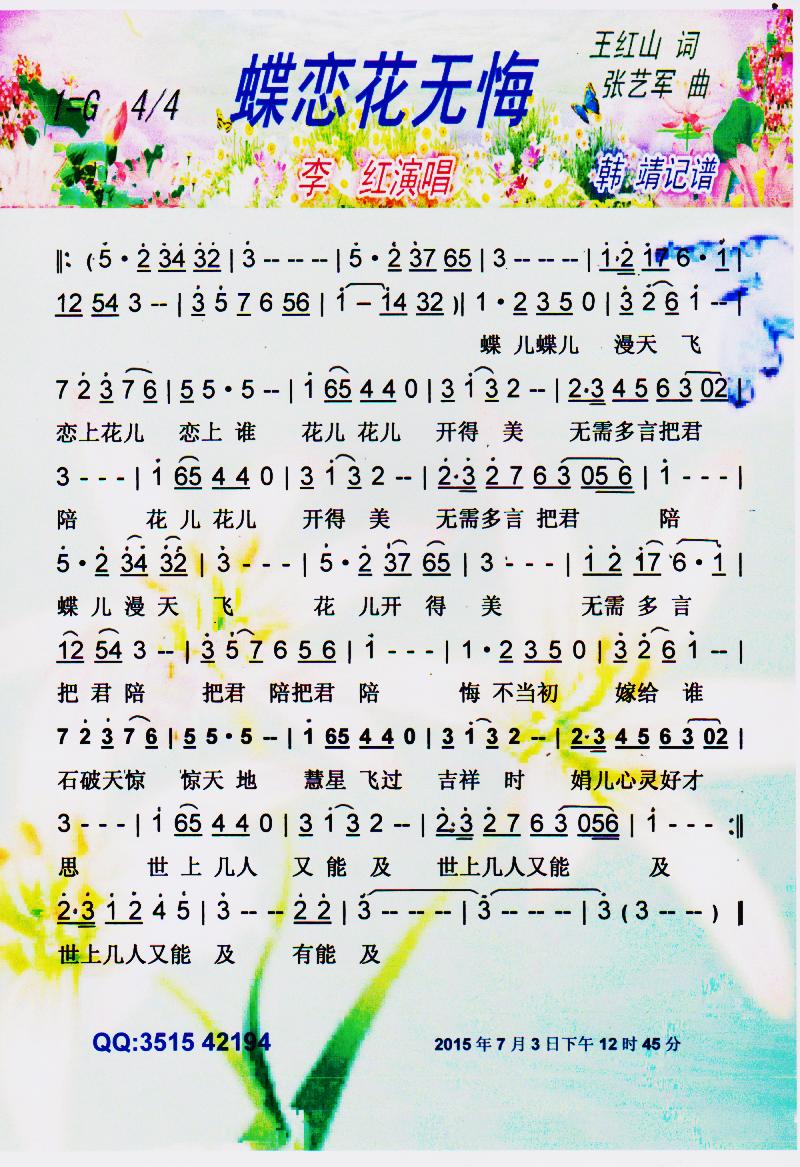 1=G 4/4
蝶恋花无悔
王红山 词
张艺军 曲
李 红演唱
韩 靖记谱
‖: ( 5 · 2 34 32 | 3 -- -- | 5 · 2 37 65 | 3 -- -- | 1·2 17 6 · 1 |
12 54 3 -- | 3 5 7 6 56 | 1 – 14 32 )| 1 · 2 3 5 0 | 3 2 6 1 -- |
蝶 儿蝶儿 漫天 飞
7 2 3 7 6 | 5 5 · 5 -- | 1 65 4 4 0 | 3 1 3 2 -- | 2·3 4 5 6 3 02 |
恋上花儿 恋上 谁 花儿 花儿 开得 美 无需多言把君
3 - - - | 1 65 4 4 0 | 3 1 3 2 -- | 2·3 2 7 6 3 05 6 | 1 - - - |
陪 花 儿 花儿 开得 美 无需多言 把君 陪
5 · 2 34 32 | 3 - - - | 5 · 2 37 65 | 3 - - - | 1 2 17 6 · 1 |
蝶 儿 漫 天 飞 花 儿开 得 美 无需 多 言
12 54 3 -- | 3 5 7 6 5 6 | 1 - - - | 1 · 2 3 5 0 | 3 2 6 1 -- |
把 君 陪 把君 陪把君 陪 悔 不当初 嫁给 谁
7 2 3 7 6 | 5 5 · 5 -- | 1 65 4 4 0 | 3 1 3 2 -- | 2·3 4 5 6 3 02 |
石破天惊 惊天 地 慧星 飞过 吉祥 时 娟儿心灵好才
3 - - - | 1 65 4 4 0 | 3 1 3 2 -- | 2·3 2 7 6 3 056 | 1 - - - :‖
思 世 上 几人 又 能 及 世上几人又能 及
2·3 1 2 4 5 | 3 -- -- 2 2 | 3 -- -- | -- -- -- | 3 ( 3 -- -- ) ‖
世上几人又能 及 有能 及
QQ:3515 42194
2015 年 7 月 3 日下午 12 时 45 分